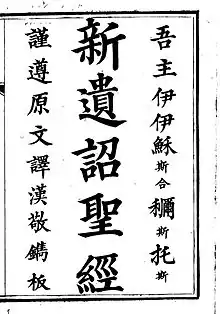 吾主伊伊穌斯合穪斯托斯
新遺詔聖經
謹遵原文譯漢敬鐫板